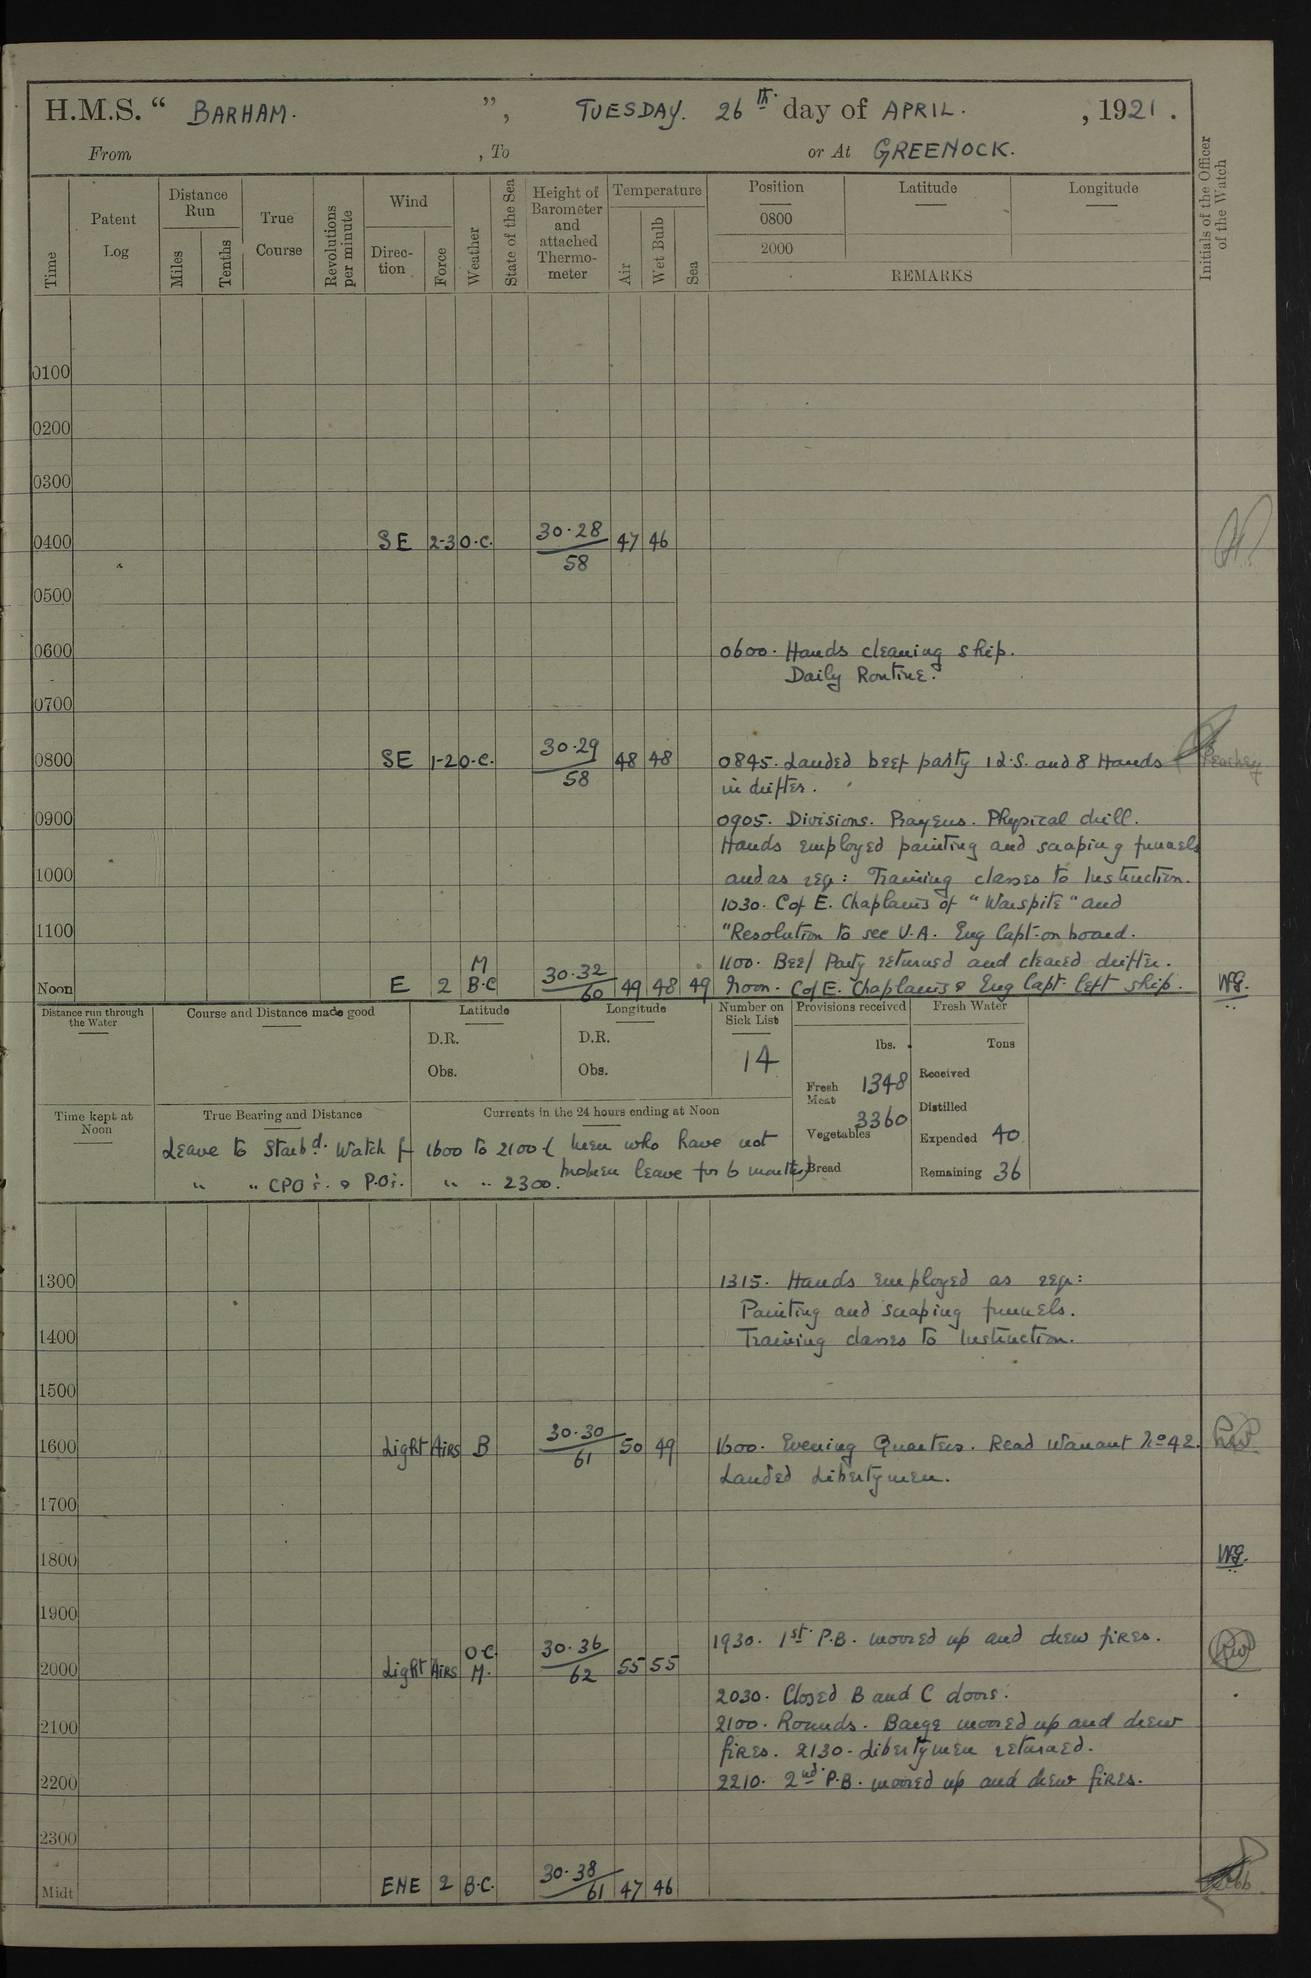 H.M.S. “ BARHAM. ”, TUESDAY. 26th. day of APRIL. , 1921.
From , To or At GREENOCK.
Time
Patent Log
Distance Run
Miles
Tenths
True Course
Revolutions per minute
Wind
Direction
Force
Weather
State of the Sea
Height of Barometer and attached Thermometer
Temperature
Air
Wet Bulb
Sea
Position
0800
2000
Latitude
Longitude
REMARKS
Initials of the Officer of the Watch
0100
0200
0300
0400 SE 2-3 O.C. 30.28 / 58 47 46
0500
0600 0600. Hands cleaning ship.
Daily Routine.
0700
0800 SE 1-2 O.C. 30.29 / 58 48 48 0845. Landed beef party 1 L.S. and 8 Hands
in drifter.
0900 0905. Divisions. Prayers. Physical drill.
Hands employed painting and scraping funnels
1000 and as req: Training classes to Instruction.
1030. C of E. Chaplains of "Warspite" and
1100 "Resolution to see V.A. Eng Capt. on board.
1100. Beef Party returned and cleared drifter.
Noon E 2 M B.C 30.32 / 60 49 48 49 Noon. C of E. Chaplains & Eng Capt. left ship. WG.
Distance run through the Water
Course and Distance made good
Latitude
D.R.
Obs.
Longitude
D.R.
Obs.
Number on Sick List
14
Provisions received
lbs.
Fresh Meat 1348
Vegetables 3360
Bread
Fresh Water
Tons
Received
Distilled
Expended 40
Remaining 36
Time kept at Noon
True Bearing and Distance
Currents in the 24 hours ending at Noon
Leave to Starbd. Watch f 1600 to 2100 ( men who have not
broken leave for 6 months)
" " CPO's. & P.O's. " " 2300.
1300 1315. Hands employed as req:
Painting and scraping funnels.
1400 Training classes to Instruction.
1500
1600 Light Airs B 30.30 / 61 50 49 1600. Evening Quarters. Read Warrant No 42.
Landed Libertymen.
1700
1800 WG.
1900
1930. 1st. P.B. moored up and drew fires.
2000 Light Airs O.C. M. 30.36 / 62 55 55
2030. Closed B and C doors.
2100 2100. Rounds. Barge moored up and drew
fires. 2130. Libertymen returned.
2200 2210. 2nd. P.B. moored up and drew fires.
2300
Midt ENE 2 B.C. 30.38 / 61 47 46